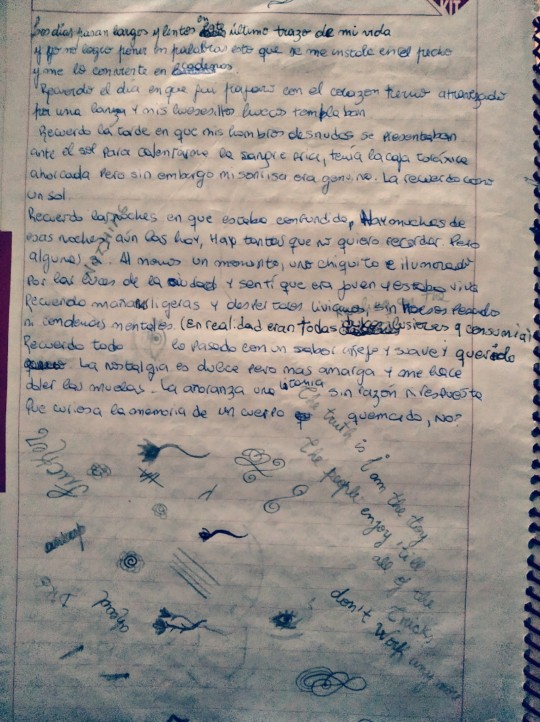 Los días pasan largos y lentos en este último trazo de mi vida
y yo no logro poner en palabras esto que se me instala en el pecho
y me lo convierte en
Recuerdo el día en que fui pájaro con el corazon tierno atravezado
por una lanza y mis huesesitos huecos temblaban
Recuerdo la tarde en que mis hombros desnudos se presentaban
ante el sol para calentarme la sangre fria, tenía la caja toraxica
ahorcada pero sin embargo mi sonrisa era genuina. La recuerdo como
un sol.
Recuerdo las noches en que estaba confundida, Hay muchas de
esas noches, aún las hay, Hay tantas que no quiero recordar pero
algunas si. Al menos un momento, uno chiquito e iluminado
por las luces de la ciudad y sentí que era joven y estaba viva
Recuerdo mañanas ligeras y despertares livianos, sin huesos pesados
ni condenas mentales. (en realidad eran todas ilusiones q consumia)
Recuerdo todo lo pasado con un sabor añejo y suave y querido
La nostalgia es dulce pero mas amarga y me hace
doler las muelas. La añoranza una manía sin razón ni respuesta
Que curiosa la memoria de un cuerpo quemado, no?
The truth is I am the toy
the people enjoy, 'till
all of the
tricks
don't work any more